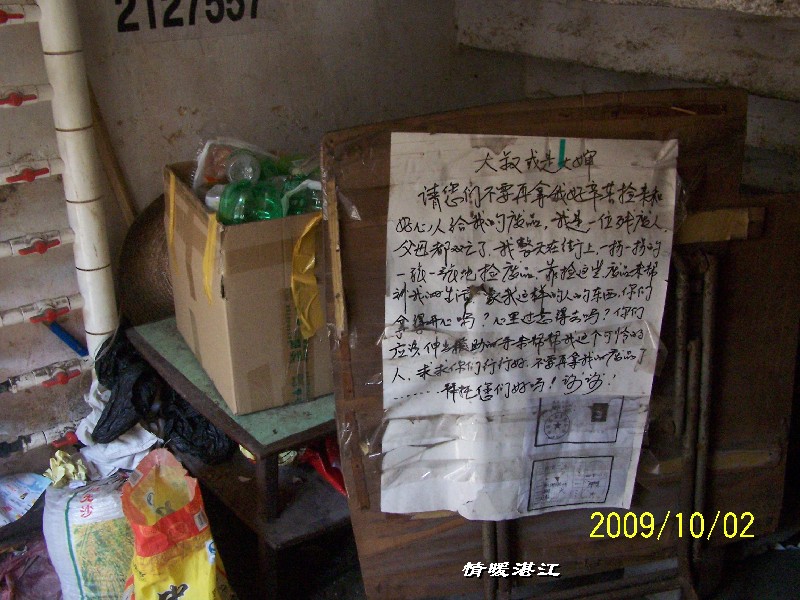 2127557
大叔或是大婶
请您们不要再拿我好辛苦捡来和
好心人给我的废品，我是一位残废人，
父母都双亡了，我整天在街上一拐一拐的
一张一张地捡废品，靠捡这些废品来帮
我的生活，拿我这样的人的东西，你们
拿得开心吗？心里过意得去吗？你们
应该伸出援助的手来帮帮我这个可怜的
人，求求你们行行好，不要再拿我的废品了
………拜托您们好吗！谢谢！
2009/10/02
情暖湛江